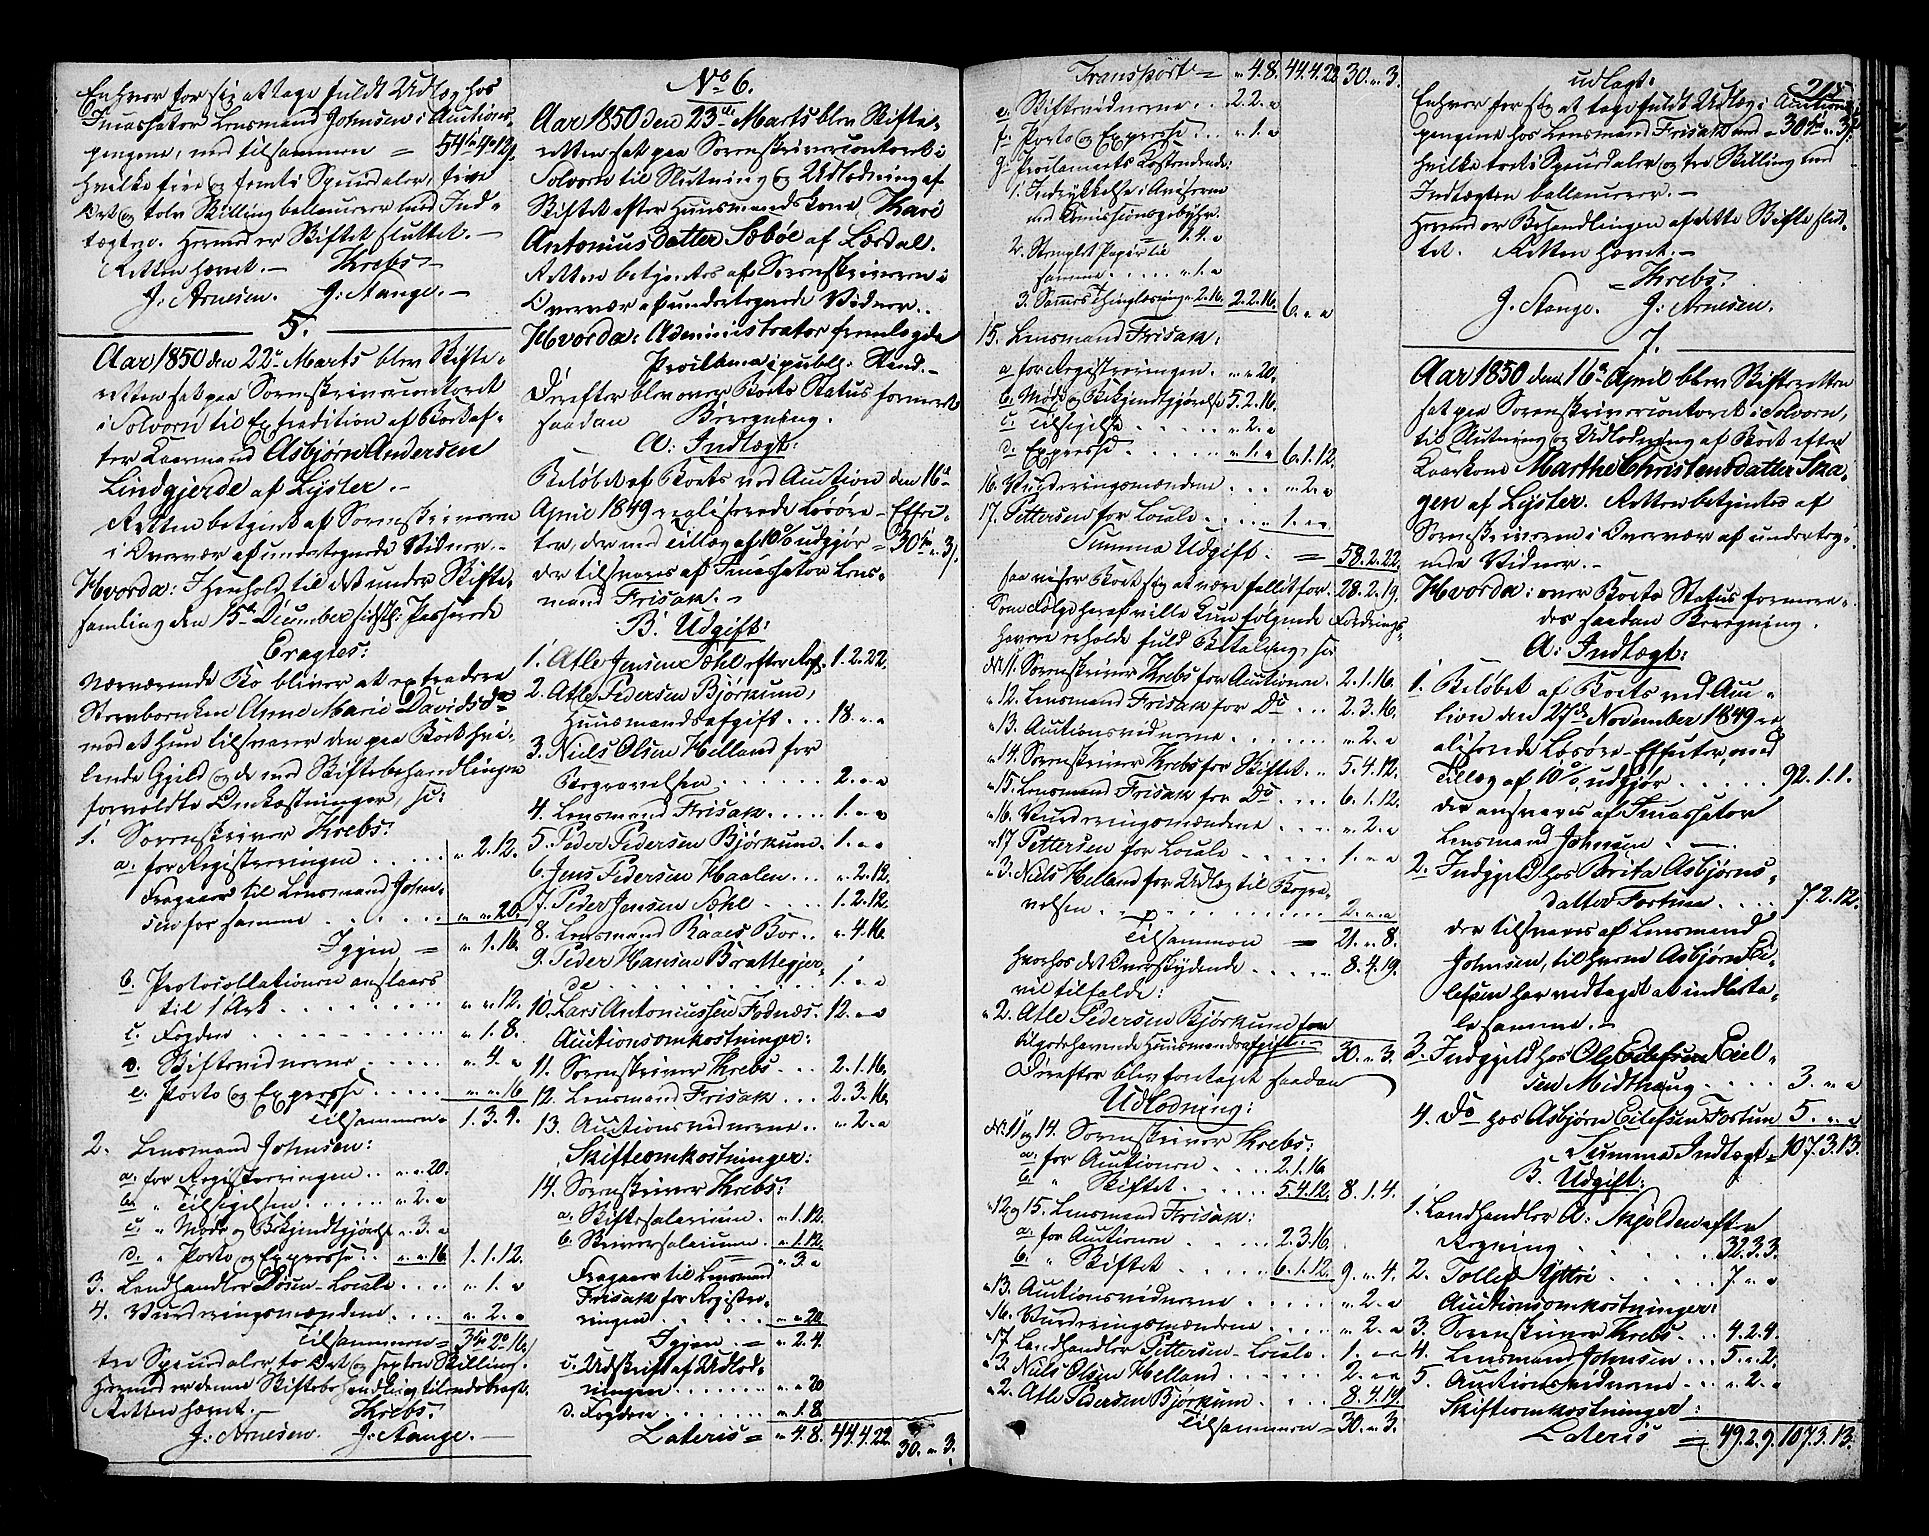 Enhver for sig at tage fuldt Udlæg hos
Incassator Lensmand Johnsen i Auctions
pengene, med tilsammen = 54 Sp 4 12
hvilke fire og femti Speciedaler, fire
Ort og tolv Skilling ballancerer med Ind-
tægten. Hermed er Skiftet sluttet. —
Retten hævet. — Krebs —
J: Arnesen. J: Stange. —
5.
Aar 1850 den 22de Marts blev Skifte-
retten sat paa Sorenskrivercontoret
i Solvorn til Extradition af Boet ef-
ter Kaarmand Asbjørn Andersen
Lindgjerde af Lyster. —
Retten betjent af Sorenskriveren
i Overvær af undertegnede Vidner. —
Hvorda: I Henhold til det under Skifte-
samling den 15de December sidstl: Passerede
Eragtes:
Nærværende Bo bliver at extradere
Steenborn Anne Marie Davidsdr
mod at hun tilsvarer den paa Boet hvi-
lende Gjeld og de ved Skiftebehandlingen
forvoldte Omkostninger, sc:
1. Sorenskriver Krebs:
a. for Registreringen . . . . . " 2. 12.
Fragaaer til Lensmand John-
sen for samme . . . . . " " 20.
Igjen = " 1. 16.
b. Protocollationen anslaaes
til 1 Ark . . . . . " " 12.
c. Fogden . . . . . " 1. 8.
d. Skiftevidnerne . . . . . " 4. "
e. Porto og Expresse . . . . . " " 16
Tilsammen = 1. 3. 4.
2. Lensmand Johnsen:
a. for Registreringen . . " " 20.
b. " Tilsigelsen . . . . . " 2. "
c. " Møde og Bekjendtgjørelse " 3. "
d. " Porto og Expresse . . " " 16. 1. 1. 12.
3. Landhandler Døsen - Locale . . . . " 1. "
4. Vurderingsmændene . . . . " 2. "
Tilsammen = 3 Sp 2 o 16
tre Speciedaler, to Ort og sexten Skilling.
Hermed er denne Skiftebehandling tilendebragt.
Retten hævet. — Krebs.
J: Arnesen. J: Stange. —
No 6.
Aar 1850 den 23de Marts blev Skifte-
retten sat paa Sorenskrivercontoret i
Solvorn til Slutning og Udlodning af
Skiftet efter Huusmandskone Kari
Antoniusdatter Sæbøe af Lærdal.
Retten betjentes af Sorenskriveren i
Overvær af undertegnede Vidner. .
Hvorda: Administrator fremlagde
Proclama i publ: Stand. —
Derefter blev over Boets Status formeret
saadan Beregning.
A: Indtægt:
Beløbet af Boets ved Auction den 16de
April 1849 realiserede Løsøre-Effec-
ter, der med Tillæg af 10% udgjør = 30 Sp " 3
der tilsvares af Incassator Lens-
mand Frisak. —
B. Udgift:
1. Atle Jensen Sæhl efter Regn. 1. 2. 22.
2. Atle Pedersen Bjørkum,
Huusmandsafgift . . . 18. " "
3. Niels Olsen Helland for
Begravelsen . . . . . 2. " "
4. Lensmand Frisak . . . . . 1. " "
5. Peder Pedersen Bjørkum . 1. " "
6. Jens Pedersen Haalen . . . " 2. 12.
7. Peder Jensen Sæhl . . . . 1. 2. 12.
8. Lensmand Baaes Boe . . " 4. 16.
9. Peder Hansen Brattegjer-
de . . . . . 1. " "
10. Lars Antoniussen Fodnæs. 12. " "
Auctionsomkostninger:
11. Sorenskriver Krebs . . . 2. 1. 16.
12. Lensmand Frisak . . . 2. 3. 16.
13. Auctionsvidnerne . . " 2. "
Skifteomkostninger:
14. Sorenskriver Krebs:
a. Skiftesalarium . " 1. 12.
b. Skriversalarium . " 1. 12.
" 3. "
Fragaaer til Lensmand
Frisak for Registre-
ringen . . . . . " " 20
Igjen = " 2. 4.
c. Udskrift af Udlod-
ningen . . . . . " " 20
d. Fogden . . . . . " 1. 8
Lateris = " 4. 8. 44. 4. 22. 30. " 3.
Transport = " 4. 8. 44. 4. 22. 30. " 3.
e. Skiftevidnerne . . 2. 2. "
f. Porto og Expresse . . . " 1. "
g. Proclamets Kostende:
1. Indrykkelse i Aviserne
med Omissionsgebyhr. 1. 4. "
2. Stemplet Papir til
samme . . . . . " 1. "
3. Sammes Thinglæsning " 2. 16. 2. 2. 16. 6. " "
15. Lensmand Frisak:
a. for Registreringen . " " 20.
b. Møde og Bekjendtgjørelse 5. 2. 16.
c. Tilsigelse . . . . . " 2. "
d. Expresse . . . . . " 1. " 6. 1. 12.
16. Vurderingsmændene . . . " 2. "
17. Pettersen for Locale . . . . 1. " "
Summa Udgift . = 58. 2. 22.
saa viser Boet sig at være fallit for 28. 2. 19.
Som Følge heraf ville kun følgende Fordrings-
havere erholde fuld Betaling, sc:
No 11. Sorenskriver Krebs for Auctionen . 2. 1. 16.
" 12. Lensmand Frisak for Do . . . 2. 3. 16.
" 13. Auctionsvidnerne . . . . . " 2. "
" 14. Sorenskriver Krebs for Skiftet . . 5. 4. 12.
" 15. Lensmand Frisak for Do . . . . 6. 1. 12.
" 16. Vurderingsmændene . . . . " 2. "
" 17 Pettersen for Locale . . . . . 1. " "
" 3. Niels Helland for Udlæg til Begra-
velsen . . . . . 2. " "
Tilsammen = 21. " 8.
hvorhos det Overskydende . . . . . 8. 4. 19.
vil tilfalde:
" 2. Atle Pedersen Bjørkum for
tilgodehavende Huusmandsafgift. — 30. " 3.
Derefter blev foretaget saadan
Udlodning:
No 11 og 14. Sorenskriver Krebs:
a. for Auctionen . . . . 2. 1. 16
b. " Skiftet . . . . . 5. 4. 12. 8. 1. 4.
" 12 og 15. Lensmand Frisak:
a. for Auctionen . . . . . 2. 3. 16.
b. " Skiftet . . . . . 6. 1. 12. 9. " 4.
" 13. Auctionsvidnerne . . . . . " 2. "
" 16. Vurderingsmændene . . . . . " 2. "
" 17. Landhandler Pettersen - Locale . 1. " "
" 3. Niels Olsen Helland . . . . . 2. " "
" 2. Atle Pedersen Bjørkum . . . . 8. 4. 19.
Tilsammen = 30. " 3.
215
udlagt:
Enhver for sig at tage fuldt Udlæg i Auctions-
pengene hos Lensmand Frisak med = 30 Sp " 3
hvilke tredi Speciedaler og tre Skilling med
Indtægten ballancerer. —
Hermed er Behandlingen af dette Skifte slut-
tet. Retten hævet. —
Krebs.
J. Stange. J: Arnesen.
7.
Aar 1850 den 16de April blev Skifteretten
sat paa Sorenskrivercontoret i Solvorn,
til Slutning og Udlodning af Boet efter
Kaarkone Marthe Christensdatter Skaa-
gen af Lyster. Retten betjentes af
Sorenskriveren i Overvær af underteg-
nede Vidner. —
Hvorda: over Boets Status formere-
des saadan Beregning.
A: Indtægt:
1. Beløbet af Boets ved Auc-
tion den 27de November 1849 re-
aliserede Løsøre-Effecter, med
Tillæg af 10%, udgjør . . . . . 92. 1. 1.
der ansvares af Incassator
Lensmand Johnsen. —
2. Indgjeld hos Brita Asbjørns-
datter Fortun . . . . 7. 2. 12.
der tilsvares af Lensmand
Johnsen, til hvem Asbjørn Ei-
lefsen har vedtaget at indbeta-
le samme. —
3. Indgjeld hos Ole Eilefsen Eiel-
sen Midthaug . . . . 3. " "
4. Do hos Asbjørn Eilefsen Fortun 5. " "
Summa Indtægt = 107. 3. 13.
B. Udgift:
1. Landhandler A: Skjolden efter
Regning . . . . . 32. 3. 3.
2. Tollef Yttri . . . . . 7. " "
Auctionsomkostninger:
3. Sorenskriver Krebs . . . 4. 2. 4.
4. Lensmand Johnsen . . . 5. " 2.
5. Auctionsvidnerne . . . " 2. "
Skifteomkostninger:
Lateris = 49. 2. 9. 107. 3. 13.